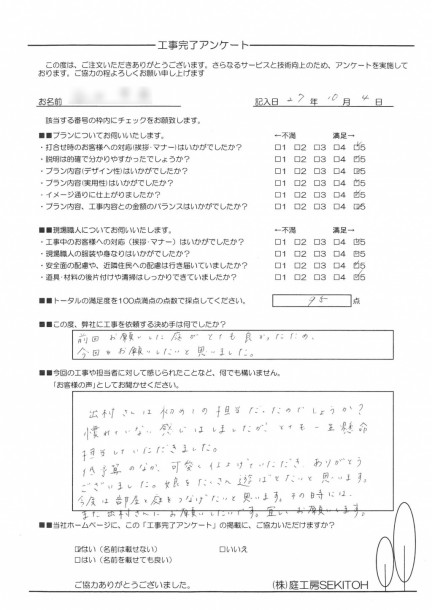 工事完了アンケート
この度は、ご注文いただきありがとうございます。さらなるサービスと技術向上のため、アンケートを実施して
おります。ご協力の程よろしくお願い申し上げます
お名前 記入日 27 年 10 月 4 日
該当する番号の枠内にチェックをお願致します。
■■プランについてお伺いいたします。 ←不満 満足→
・打合せ時のお客様への対応(挨拶・マナー)はいかがでしたか? □1 □2 □3 □4 ☑5
・説明は的確で分かりやすかったでしょうか? □1 □2 □3 □4 ☑5
・プラン内容(デザイン性)はいかがでしたか? □1 □2 □3 □4 ☑5
・プラン内容(実用性)はいかがでしたか? □1 □2 □3 □4 ☑5
・イメージ通りに仕上がりましたか? □1 □2 □3 □4 ☑5
・プラン内容、工事内容との金額のバランスはいかがでしたか? □1 □2 □3 □4 ☑5
■■現場職人についてお伺いいたします。 ←不満 満足→
・工事中のお客様への対応(挨拶・マナー)はいかがでしたか? □1 □2 □3 □4 ☑5
・現場職人の服装や身なりはいかがでしたか? □1 □2 □3 □4 ☑5
・安全面の配慮や、近隣住民への配慮は行き届いていましたか? □1 □2 □3 □4 ☑5
・道具・材料の後片付けや清掃はしっかりできていましたか? □1 □2 □3 □4 ☑5
■■トータルの満足度を100点満点の点数で採点してください。 95 点
■■この度、弊社に工事を依頼する決め手は何でしたか?
前回お願いした庭がとても良かったため、
今回もお願いしたいと思いました。
■■今回の工事や担当者に対して感じられたことなど、何でも構いません。
「お客様の声」としてお聞かせください。
出村さんは初めての担当だったのでしょうか?
慣れていない感じはしましたが、とても一生懸命
担当していただきました。
低予算のなか、可愛く仕上げていただき、ありがとう
ございました。娘をたくさん遊ばせたいと思います。
今度は部屋と庭をつなげたいと思います。その時には、
また出村さんにお願いしたいです。宜しくお願いします。
■■当社ホームページに、この「工事完了アンケート」の掲載に、ご協力いただけますか?
☑はい (名前は載せない) □いいえ
□はい (名前を載せても良い)
ご協力ありがとうございました。 (株)庭工房SEKITOH